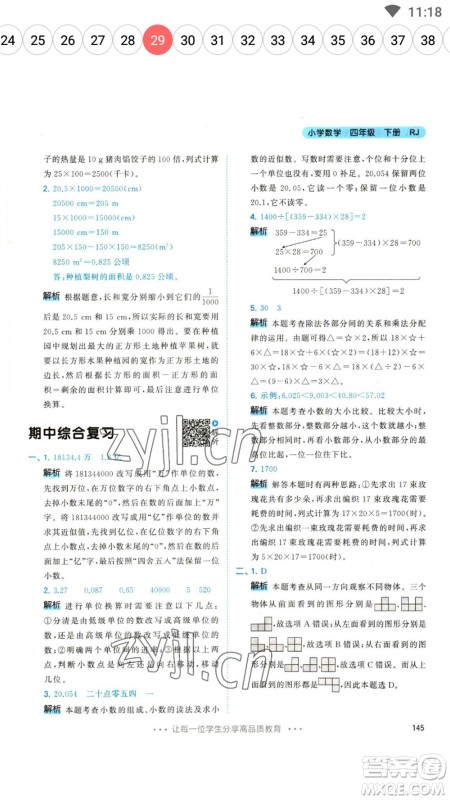 11:18
24 25 26 27 28 29 30 31 32 33 34 35 36 37 38
小学数学 四年级 下册 RJ
子的热量是 10 g 猪肉馅饺子的 100 倍，列式计算
为 25×100=2500(千卡)。
2. 20.5×1000=20500(cm)
20500 cm=205 m
15×1000=15000(cm)
15000 cm=150 m
205×150-150×150=8250(m²)
8250 m²=0.825 公顷
答：种植梨树的面积是 0.825 公顷。
解析 根据题意，长和宽分别缩小到它们的 1/1000
是 20.5 cm 和 15 cm，所以长和宽要分别乘
1000 得出原来的长和宽，是多少米。要在种植
园里规划一个最大的正方形土地种植苹果树，就
要以长方形种植园的宽作为正方形土地的边长，
据此规划即可。用长方形的面积－正方形的面
积=剩余的面积计算即可，最后进行单位
换算。
期中综合复习
解析
一、1. 18134.4 万
解析 把 181344000 改写成用“万”作单位的数，
先找到万位，在万位数字的右下角点上小数点，
去掉小数末尾的“0”，然后在后面加上“万”
字。将 181344000 改写成用“亿”作单位的数并
求其近似值，先找到亿位，在亿位数字的右下角
点上小数点，去掉小数末尾的“0”，然后在后面
加上“亿”字，最后按照“四舍五入”法保留一位
小数。
2. 3.27 0.087 0.65 40900 5 520
解析 进行单位换算时需要注意以下几点：
①分清楚是由低级单位的数改写成高级单位的
数，还是由高级单位的数改写成低级单位的数；
②明确两个单位之间的进率是多少；③根据进
率，判断小数点是向左移动还是向右移动，移动
几位。
3. 20.054 二十点零五四 一
解析 本题考查小数的组成、小数的读法以及小
数的近似数。写数时需要注意，哪一个数位上一
个单位也没有，要写 0 占位。20.054 保留两位
小数是 20.05，读作二十点零五；保留一位小数
是 20.1，它不读零。
4. 1400÷[(359-334)×28]=2
解析 359-334=25 (359-334)×28=700
25×28=700
1400÷700=2
1400÷[(359-334)×28]=2
5. 30 3
解析 本题考查除法各部分间的关系和乘法运算
律。因为 18÷☆=6×△，所以 18=☆×(6×
△)=☆×6×△=6×(☆×△)，☆×△=18÷
6=3。(☆×15)×(△×
6. 示例：6.025<9.003<40.80<57.02
解析 本题考查小数的大小比较。整数部分越
大，这个小数就越大；整数部分越小，这个小数就
越小。
7. 1700
解析 解答本题时有两种思路：①先求出 5 束玫
瑰花共有多少朵，再求出制作 17 束玫瑰花需要
耗费的时间；②先求出编织 1 束玫瑰花需要耗费
的时间，再求出编织 17 束玫瑰花需要耗费的时
间。5×20×17=1700(时)
二、1. D
解析 本题考查从不同方向观察物体。从上面
和前面看到的图形分别是
，故选项 A 错误；从右面和前面看到的
图形分别是
，故选项 B 错误；从左面
和前面看到的图形分别是
，故选项 C 错误；从左面和右面看到的
让每一位学生分享高品质教育
145
zyjl.cn
zyjl.cn